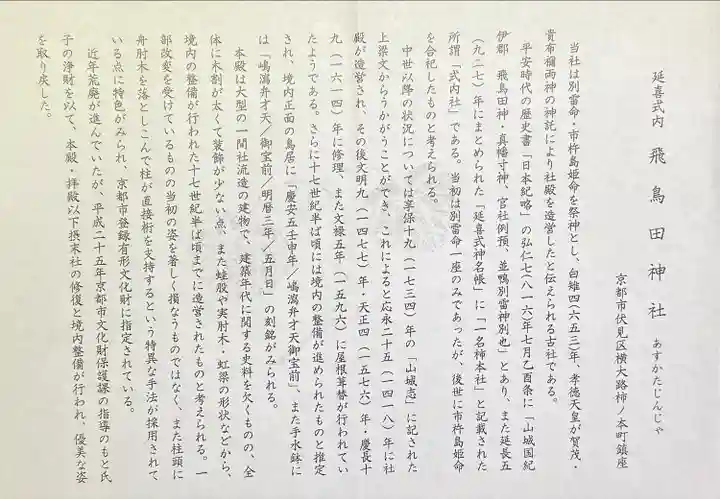 延喜式内 飛鳥田神社 あすかたじんじゃ
京都市伏見区横大路柿ノ本町鎮座
当社は別雷命・市杵島姫命を祭神とし、白雉四(六五三)年、孝徳天皇が賀茂・
貴布禰両神の神託により社殿を造営したと伝えられる古社である。
平安時代の歴史書「日本紀略」の弘仁七(八一六)年七月乙酉条に「山城国紀
伊郡 飛鳥田神・真幡寸神、官社例預、並鴨別雷神別也」とあり、また延長五
(九二七)年にまとめられた「延喜式神名帳」に「一名柿本社」と記載された
所謂「式内社」である。当初は別雷命一座のみであったが、後世に市杵島姫命
を合祀したものと考えられる。
中世以降の状況については享保十九(一七三四)年の「山城志」に記された
上梁文からうかがうことができ、これによると応永二十五(一四一八)年に社
殿が造営され、その後文明九(一四七七)年・天正四(一五七六)年・慶長十
九(一六一四)年に修理、また文禄五年(一五九六)に屋根葺替が行われてい
たようである。さらに十七世紀半ば頃には境内の整備が進められたものと推定
され、境内正面の鳥居に「慶安五壬申年/嶋瀉弁才天御宝前」、また手水鉢に
は「嶋瀉弁才天/御宝前/明暦三年/五月日」の刻銘がみられる。
本殿は大型の一間社流造の建物で、建築年代に関する史料を欠くものの、全
体に木割が太くて装飾が少ない点、また蛙股や実肘木・虹梁の形状などから、
境内の整備が行われた十七世紀半ば頃までに造営されたものと考えられる。一
部改変を受けているものの当初の姿を著しく損なうものではなく、また柱頭に
舟肘木を落としこんで柱が直接桁を支持するという特異な手法が採用されて
いる点に特色がみられ、京都市登録有形文化財に指定されている。
近年荒廃が進んでいたが、平成二十五年京都市文化財保護課の指導のもと氏
子の浄財を以て、本殿・拝殿以下摂末社の修復と境内整備が行われ、優美な姿
を取り戻した。